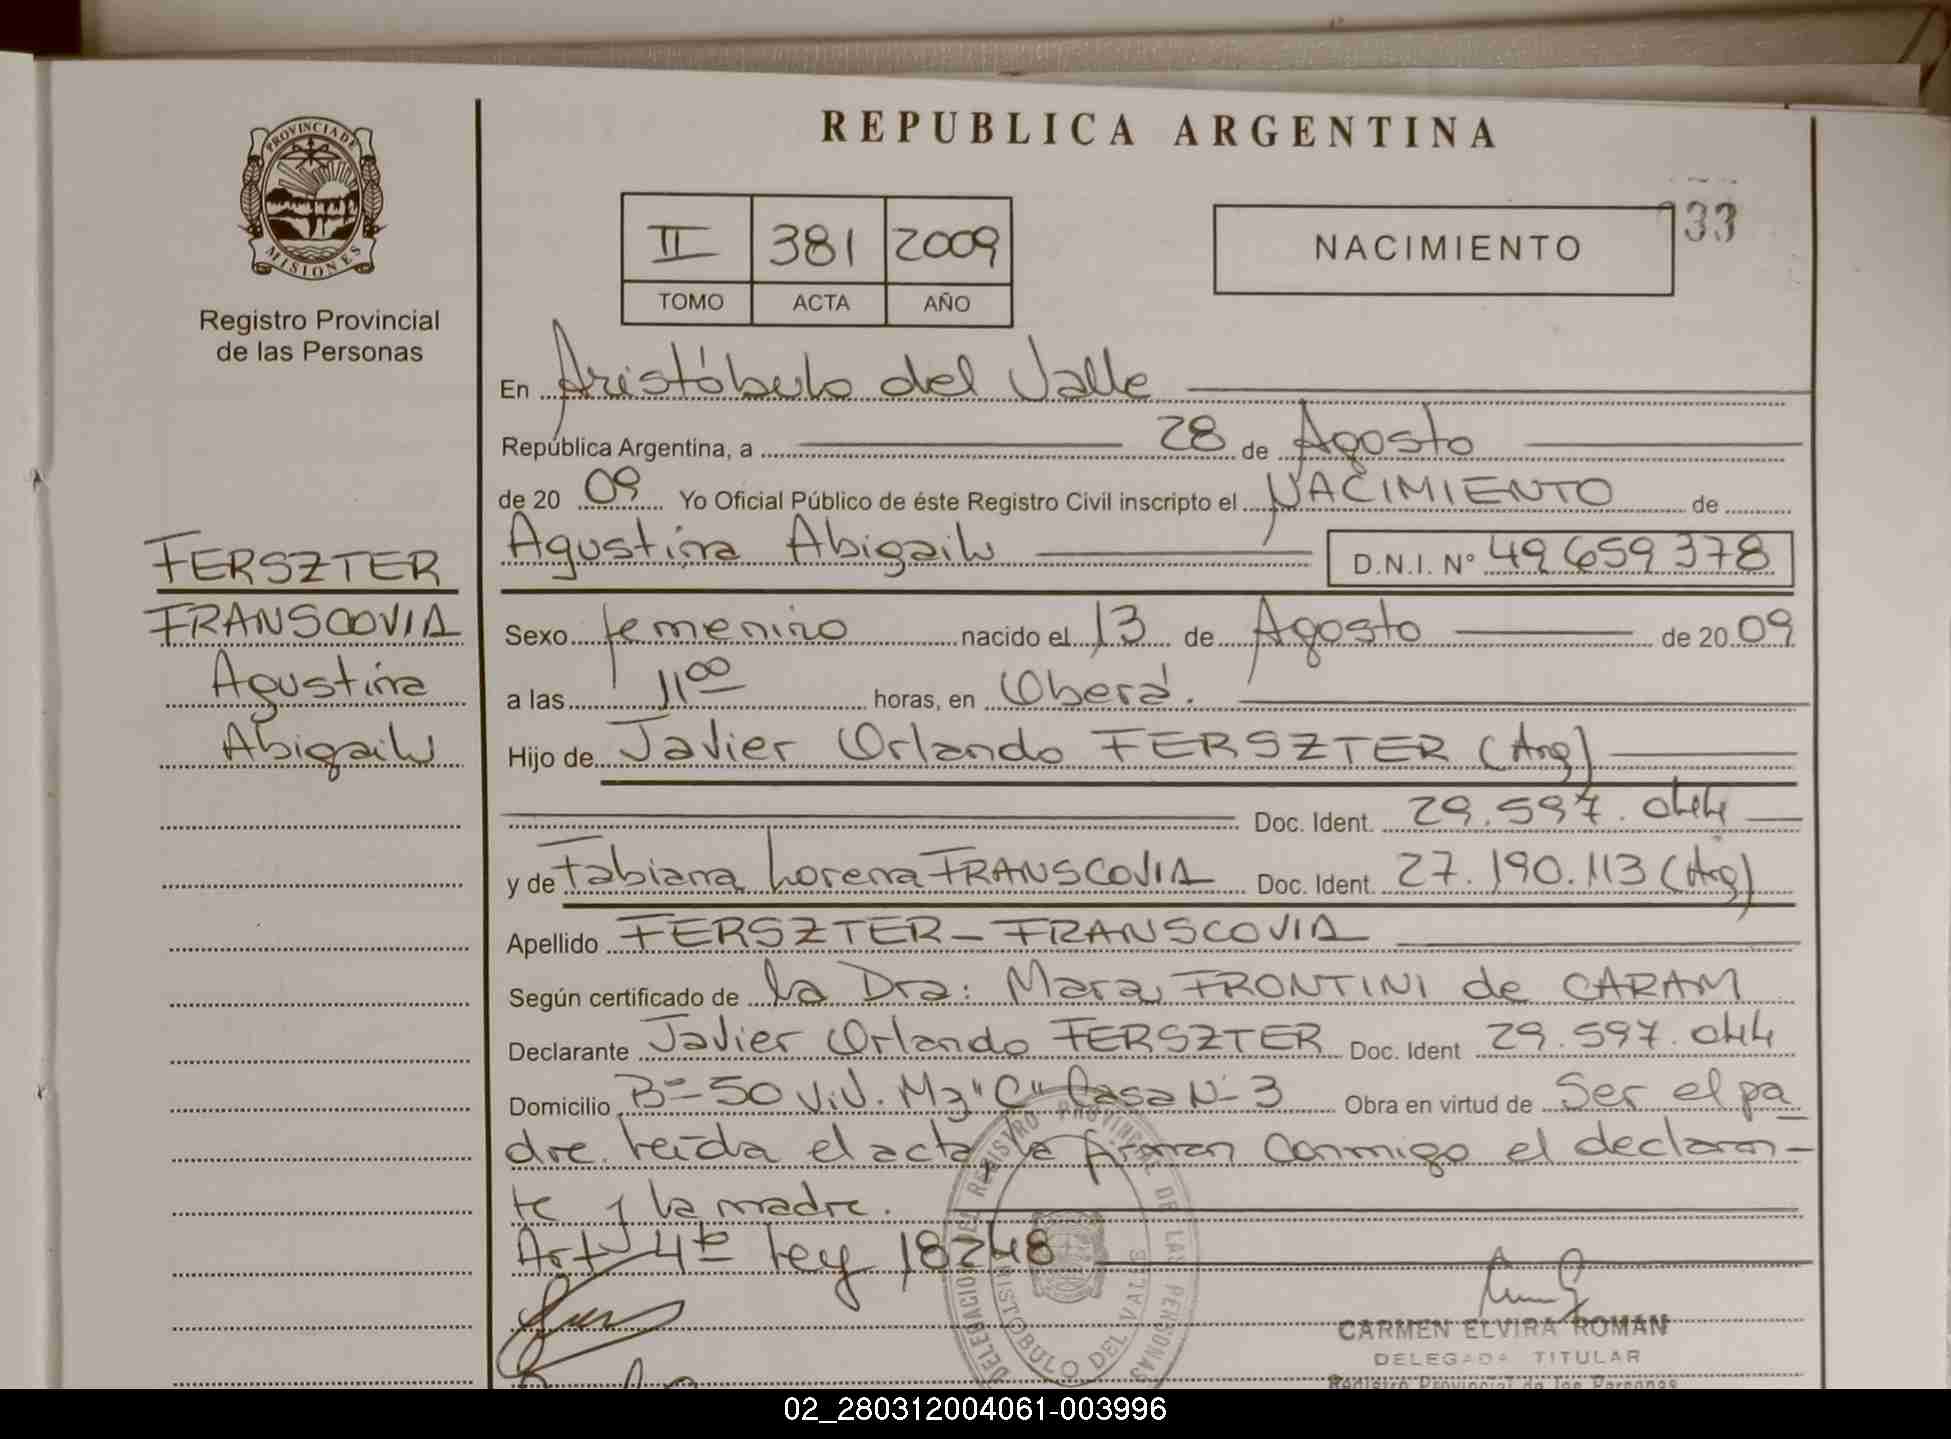 REPUBLICA ARGENTINA
PROVINCIA DE
MISIONES
Registro Provincial
de las Personas
II 381 2009
TOMO ACTA AÑO
NACIMIENTO
33
En Aristóbulo del Valle
República Argentina, a 28 de Agosto
de 20 09 Yo Oficial Público de éste Registro Civil inscripto el NACIMIENTO de
Agustina Abigail D.N.I. N° 49659378
FERSZTER
FRANSCOVIA
Agustina
Abigail
Sexo femenino nacido el 13 de Agosto de 20 09
a las 11 00 horas, en Oberá.
Hijo de Javier Orlando FERSZTER (Arg)
Doc. Ident. 29.597.044
y de Fabiana Lorena FRANSCOVIA Doc. Ident. 27.190.113 (Arg)
Apellido FERSZTER - FRANSCOVIA
Según certificado de la Dra: Mara FRONTINI de CARAM
Declarante Javier Orlando FERSZTER Doc. Ident 29.597.044
Domicilio B= 50 Viv. Mz "C" Casa N- 3 Obra en virtud de Ser el pa
dre. Leída el acta, la firman conmigo el declaran-
te y la madre.
Art 4to Ley 18248
DELEGACION REGISTRO PROVINCIAL DE LAS PERSONAS
ARISTOBULO DEL VALLE
CARMEN ELVIRA ROMAN
DELEGADA TITULAR
Registro Provincial de las Personas
02_280312004061-003996